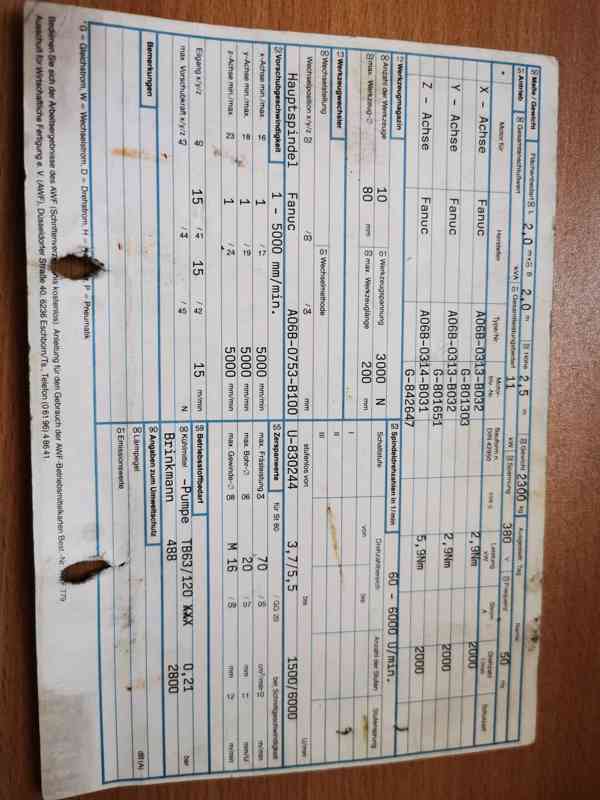 Maße / Gewicht Flächenbedarf L 2,0 m × B 2,0 m Höhe 2,5 m Gewicht 2300 kg Ausgestellt Tag Name
Antrieb Gesamtanschlußwert kVA Gesamtleistungsbedarf 11 kW Spannung 380 V Frequenz 50 Hz
Motor für Hersteller Type/Nr. Motor-Inv.-Nr. Bauform n. DIN 42950 Leistung kW Strom A Drehzahl 1/min Schutzart
X - Achse Fanuc A06B-0313-B032 G-801303 2,9Nm 2000
Y - Achse Fanuc A06B-0313-B032 G-801651 2,9Nm 2000
Z - Achse Fanuc A06B-0314-B031 G-842647 5,9Nm 2000
Werkzeugmagazin
Anzahl der Werkzeuge 10 Werkzeugspannung 3000 N
max. Werkzeug-∅ 80 mm max. Werkzeuglänge 200 mm
Werkzeugwechsler
Wechselstellung Wechselmethode
Wechselposition x/y/z
Spindeldrehzahlen in 1/min 60 - 6000 U/min.
Schaltstufe Drehzahlbereich von bis Anzahl der Stufen Stufensprung
I
II
III
stufenlos von bis U/min
Hauptspindel Fanuc A06B-0753-B100 U-830244 3,7/5,5 1500/6000
Vorschubgeschwindigkeit 1 - 5000 mm/min.
x-Achse min./max. 16 1 /17 5000 mm/min
y-Achse min./max. 18 1 /19 5000 mm/min
z-Achse min./max. 23 1 /24 5000 mm/min
Eilgang x/y/z 40 15 /41 15 /42 15 m/min
max. Vorschubkraft x/y/z N
Zerspanwerte für St 60 / GG 20 bei Schnittgeschwindigkeit
max. Fräsleistung 70 m/min
max. Bohr-∅ 20 mm
max. Gewinde-∅ M 16 mm m/min
Betriebsstoffbedarf
Kühlmittel -Pumpe TB63/120 XXX 0,21 bar
Brinkmann 488 2800
Bemerkungen
Angaben zum Umweltschutz
Lärmpegel dB (A)
Emissionswerte
*G = Gleichstrom, W = Wechselstrom, D = Drehstrom, H = P = Pneumatik
Bedienen Sie sich der Arbeitsergebnisse des AWF (Schriftenverz kostenlos). Anleitung für den Gebrauch der AWF-Betriebsmittelkarten Best.-Nr. 779
Ausschuß für Wirtschaftliche Fertigung e. V. (AWF), Düsseldorfer Straße 40, 6236 Eschborn/Ts., Telefon (0 61 96) 4 86 41.